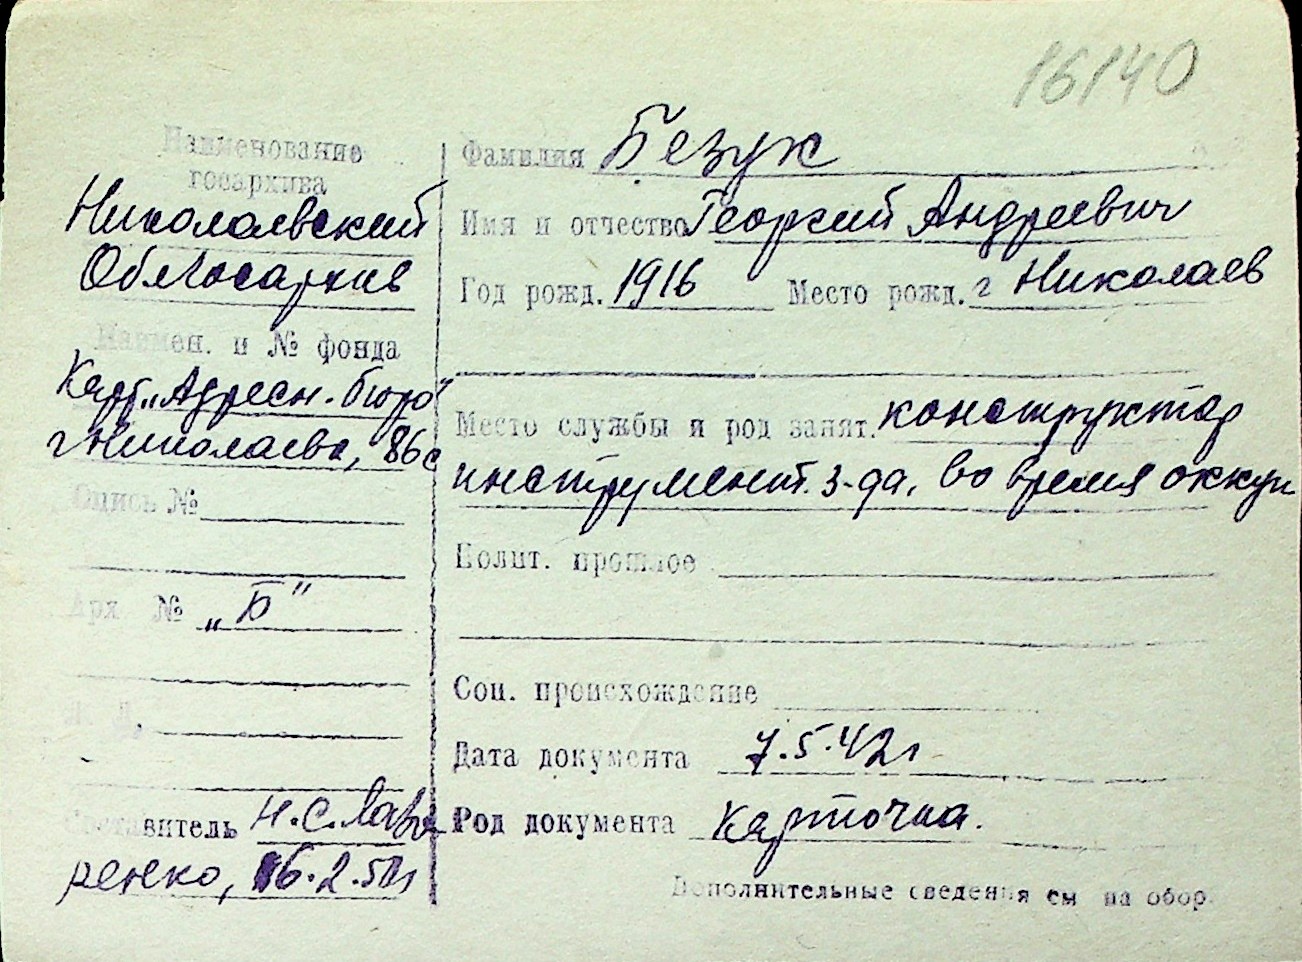 16140
Наименование
госархива
Николаевский
Облгосархив
Наимен. и № фонда
Карт. „Адресн. бюро"
г Николаева, 86с
Опись №
Арх №„Б"
Л. Д.
Составитель Н. С. Лав
ренко, 16.2.51г
Фамилия Безух
Имя и отчество Георгий Андреевич
Год рожд. 1916 Место рожд. г Николаев
Место службы и род занят. конструктор
инструмент. з-да, во время оккуп
Полит. прошлое
Соц. происхождение
Дата документа 7.5.42г
Род документа карточка.
Дополнительные сведения см на обор.